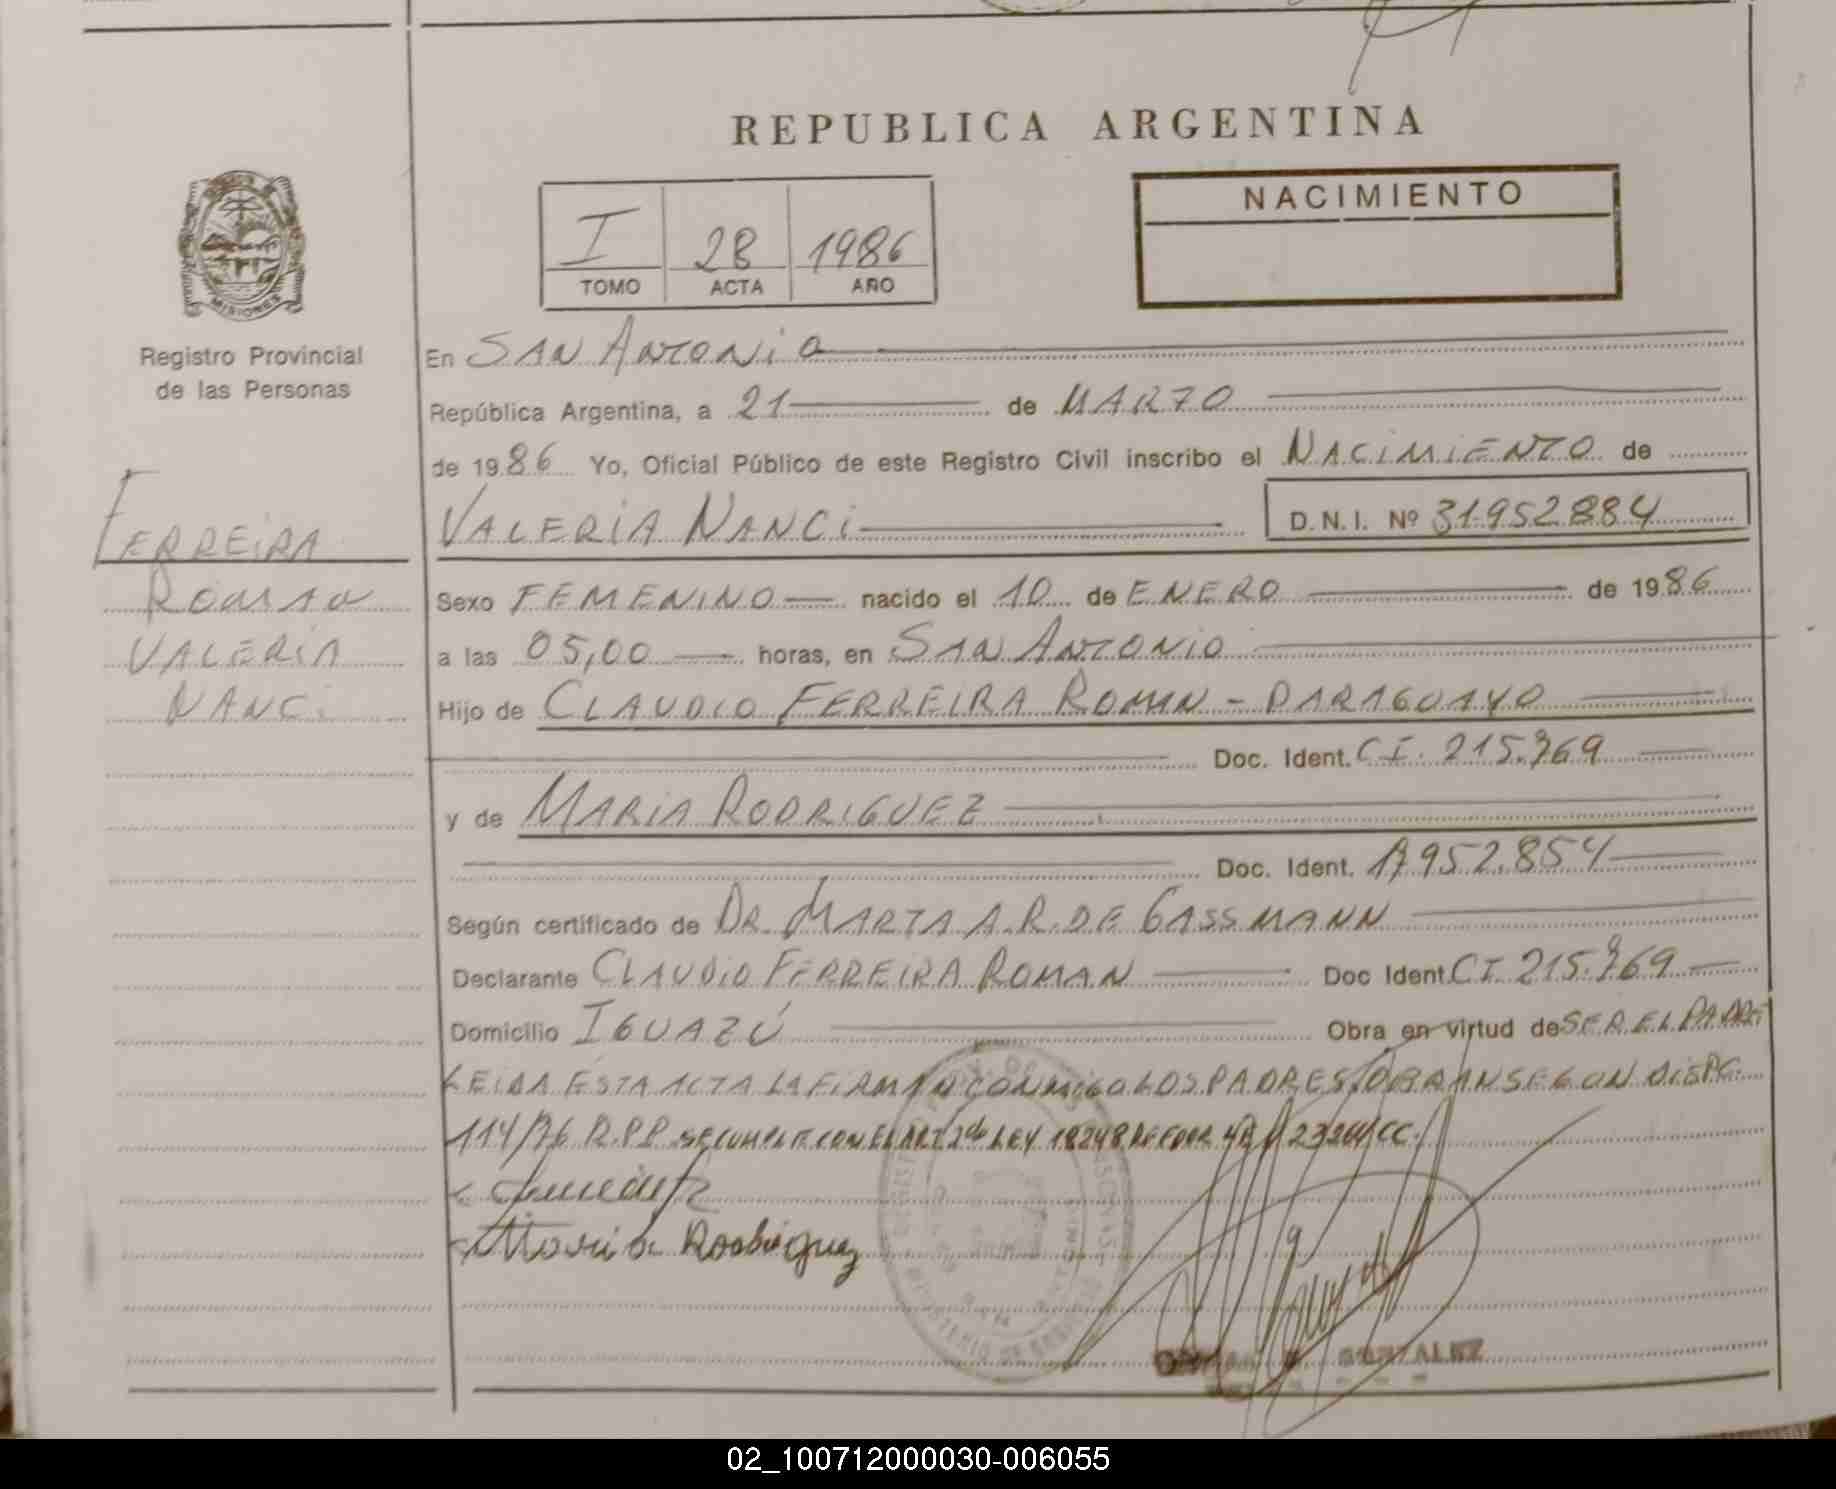 REPUBLICA ARGENTINA
NACIMIENTO
I 28 1986
TOMO ACTA AÑO
MISIONES
Registro Provincial
de las Personas
FERREIRA
ROMAN
VALERIA
NANCI
En SAN ANTONIO
República Argentina, a 21 de MARZO
de 1986 Yo, Oficial Público de este Registro Civil inscribo el NACIMIENTO de
VALERIA NANCI D.N.I. Nº 31.952.884
Sexo FEMENINO nacido el 10 de ENERO de 1986
a las 05,00 horas, en SAN ANTONIO
Hijo de CLAUDIO FERREIRA ROMAN - PARAGUAYO
Doc. Ident. CI. 215.769
y de MARIA RODRIGUEZ
Doc. Ident. 17.952.854
Según certificado de DR. MARTA A.R. DE GASSMANN
Declarante CLAUDIO FERREIRA ROMAN Doc Ident. CI. 215.769
Domicilio IGUAZÚ Obra en virtud de SER EL PADRE
LEIDA ESTA ACTA LA FIRMAN CONMIGO LOS PADRES OBRAN SEGUN DISPC.
114/76 R.P.P. SE CUMPLE CON EL ART 2do LEY 18248
Maria Rodriguez
GONZALEZ
02_100712000030-006055